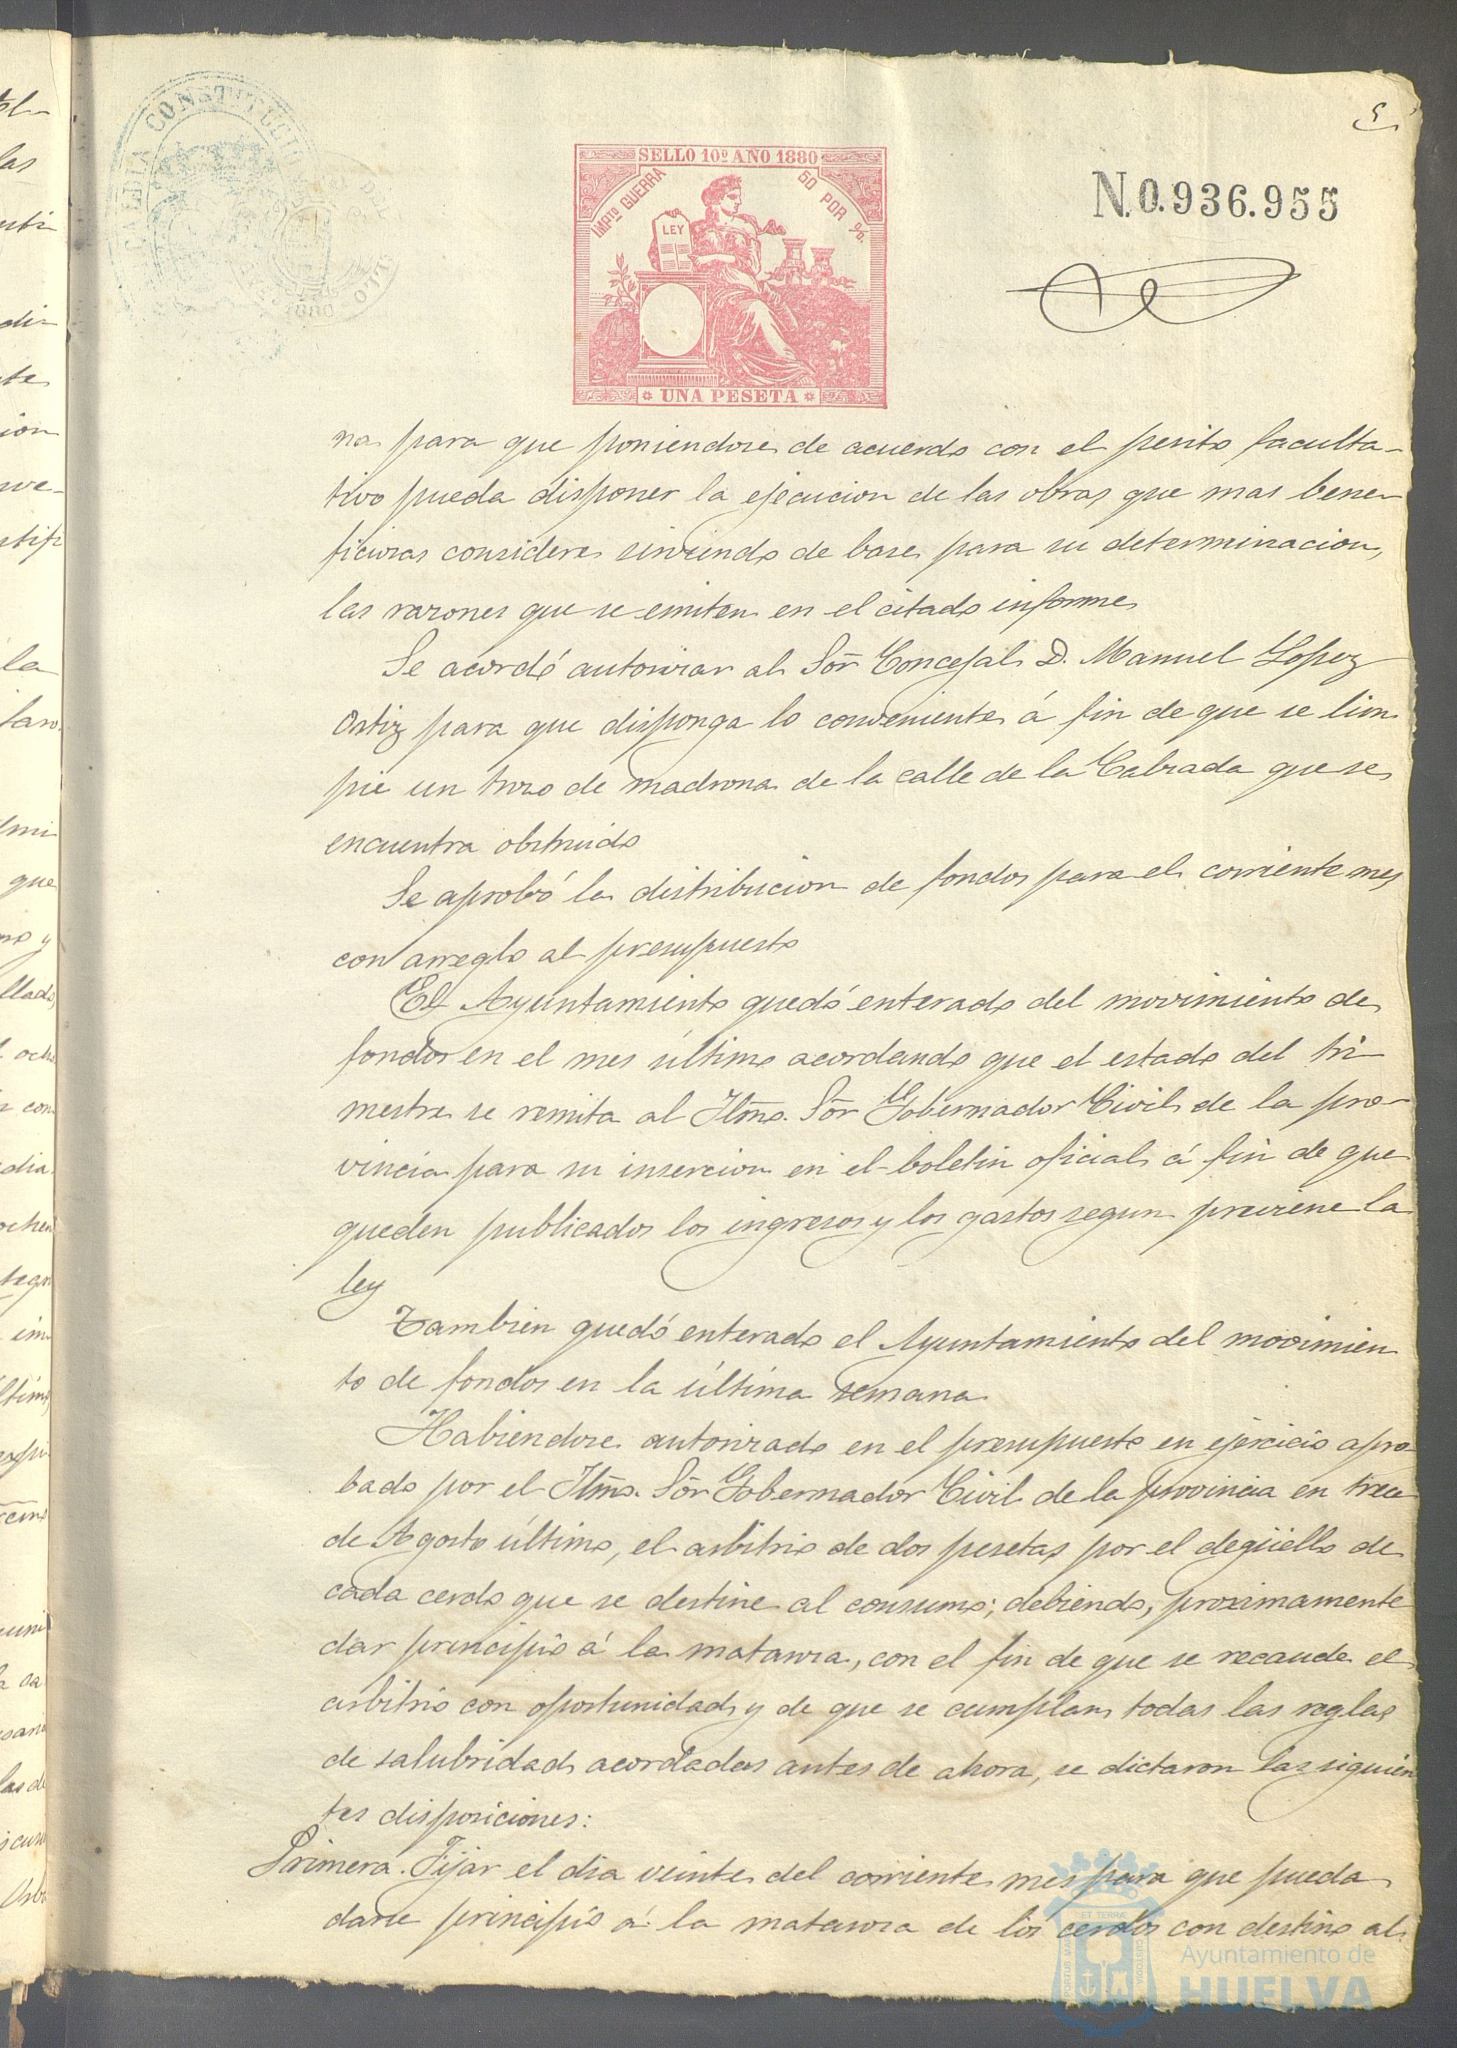 5
ALCALDIA CONSTITUCIO
1880
SELLO 10º AÑO 1880
IMPTO GUERRA
50 POR %.
LEY
UNA PESETA
N.0.936.955
na para que poniendose de acuerdo con el perito faculta-
tivo pueda disponer la ejecucion de las obras que mas bene-
ficiosas considere sirviendo de base para su determinacion,
las razones que se emiten en el citado informe
Se acordó autorizar al Sôr Concejal D. Manuel Lopez
Ortiz para que disponga lo conveniente á fin de que se lim
pie un trozo de madrona de la calle de la Calzada que se
encuentra obstruido
Se aprobó la distribucion de fondos para el corriente mes
con arreglo al presupuesto
El Ayuntamiento quedó enterado del movimiento de
fondos en el mes último acordando que el estado del tri
mestre se remita al Iltmo. Sôr Gobernador Civil de la pro-
vincia para su insercion en el boletin oficial á fin de que
queden publicados los ingresos y los gastos segun previene la
ley
Tambien quedó enterado el Ayuntamiento del movimien
to de fondos en la última semana
Habiendose autorizado en el presupuesto en ejercicio apro-
bado por el Iltmo. Sôr Gobernador Civil de la provincia en trece
de Agosto último, el arbitrio de dos pesetas por el degüello de
cada cerdo que se destine al consumo; debiendo, proximamente
dar principio á la matanza, con el fin de que se recaude el
arbitrio con oportunidad y de que se cumplan todas las reglas
de salubridad acordadas antes de ahora, se dictaron las siguien
tes disposiciones:
Primera. Fijar el dia veinte del corriente mes para que pueda
darse principio á la matanza de los cerdos con destino al
Ayuntamiento de
HUELVA